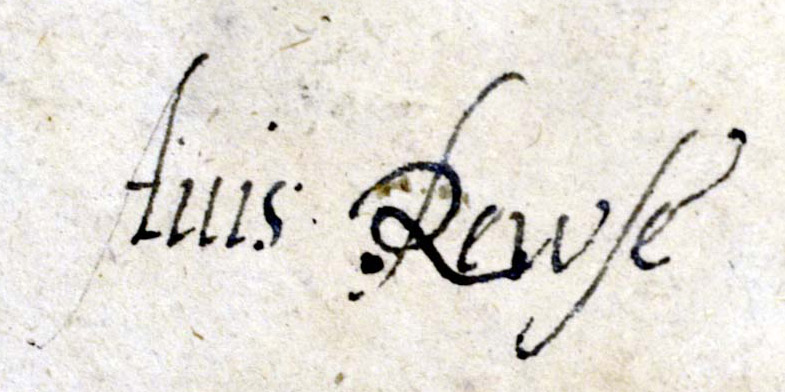 Auis Rewse